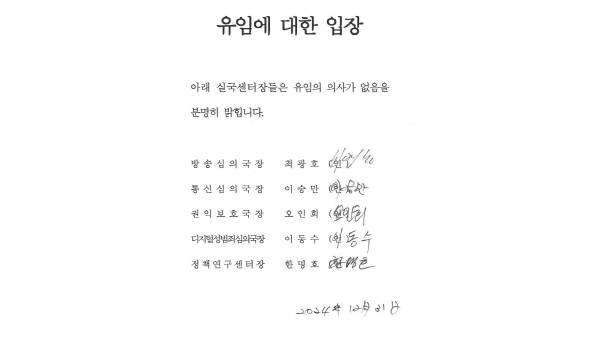 유임에 대한 입장
아래 실국센터장들은 유임의 의사가 없음을
분명히 밝힙니다.
방송심의국장 최광호 (인)
통신심의국장 이승만 (인)
권익보호국장 오인희 (인) 오인희
디지털성범죄심의국장 이동수 (인) 이동수
정책연구센터장 한명호 (인)
2024年 12月 21日